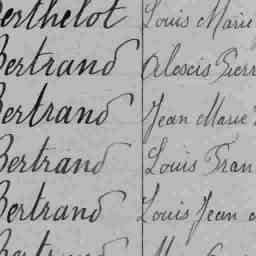 Berthelot Louis Marie
Bertrand Alexis Pierr
Bertrand Jean Marie
Bertrand Louis Fran
Bertrand Louis Jean
Bertrand